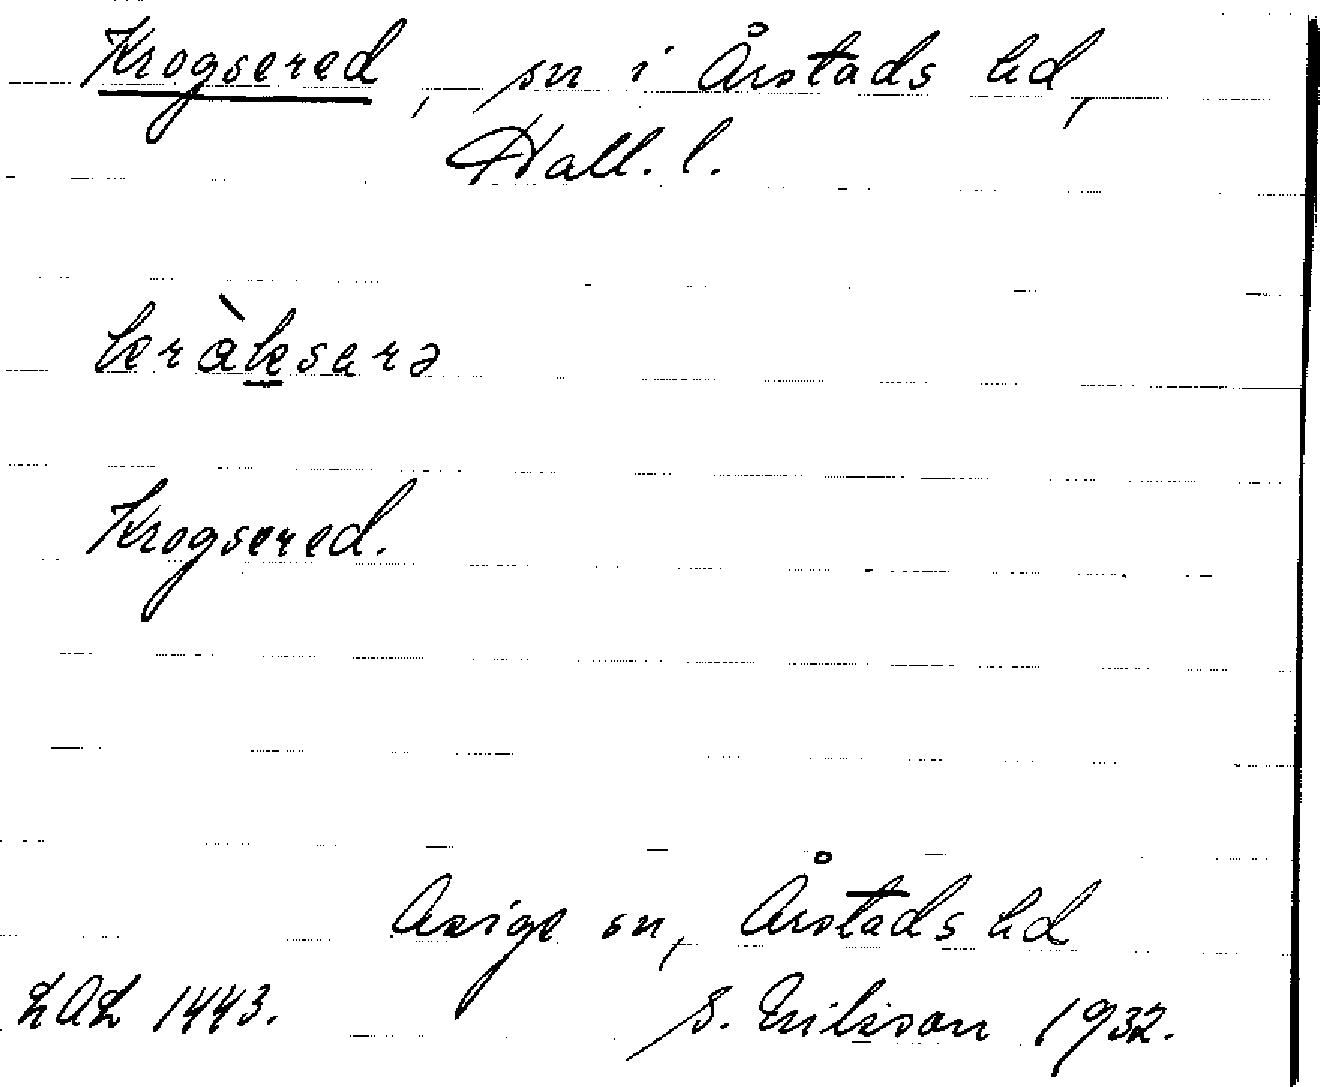 Krogsered, sn i Årstads hd,
Hall. l.
kràksarə
Krogsered.
Asige sn, Årstads hd
LAL 1443. S. Erikson 1932.